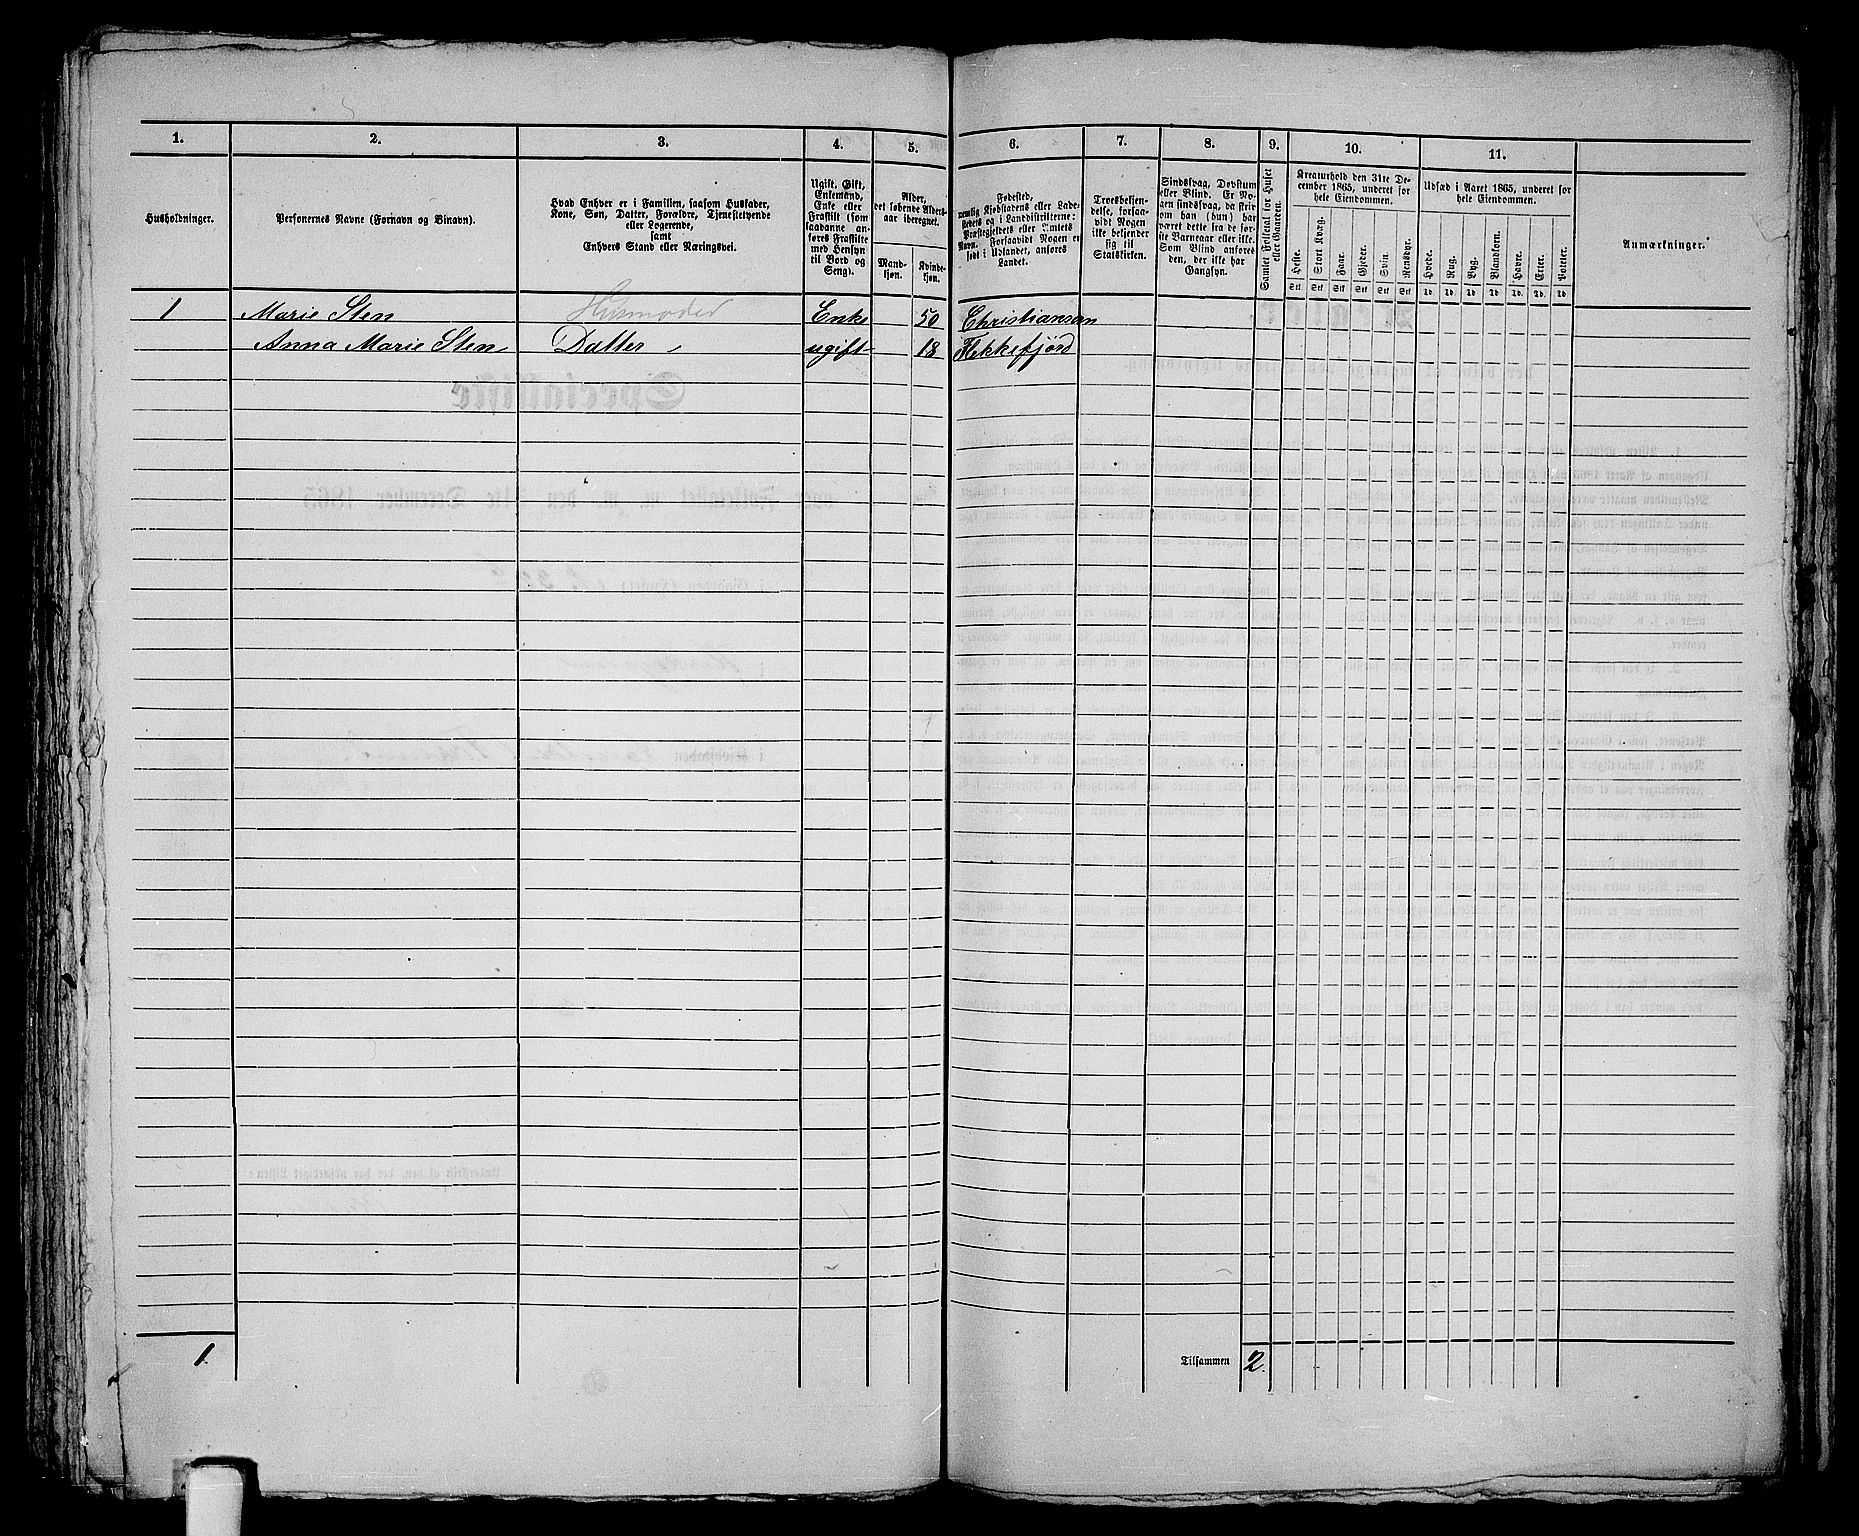 1.
2.
3.
4.
5.
6.
7.
8.
9.
10.
11.
Husholdninger.
Personernes Navne (Fornavn og Binavn).
Hvad Enhver er i Familien, saasom Husfader,
Kone, Søn, Datter, Forældre, Tjenestetyende
eller Logerende,
samt
Enhvers Stand eller Næringsvei.
Ugift, Gift,
Enkemand,
Enke eller
Fraskilt (som
saadanne an-
føres Fraskilte
med Hensyn
til Bord og
Seng).
Alder,
det løbende Alders-
aar iberegnet.
Mand-
kjøn.
Kvinde-
kjøn.
Fødested,
nemlig Kjøbstadens eller Lade-
stedets og i Landdistrikterne:
Præstegjeldets eller Amtets
Navn. Forsaavidt Nogen er
født i Udlandet, anføres
Landet.
Troesbekjen-
delse, forsaa-
vidt Nogen
ikke bekjender
sig til
Statskirken.
Sindssvag, Døvstum
eller Blind. Er No-
gen sindssvag, da skriv
om han (hun) har
været dette fra de før-
ste Barneaar eller ikke.
Som Blind anføres
den, der ikke har
Gangsyn.
Samlet Folketal for Huset
eller Gaarden.
Kreaturhold den 31te De-
cember 1865, underet for
hele Eiendommen.
Heste.
Stort Kvæg.
Faar.
Gjeder.
Svin.
Rensdyr.
Stk.
Stk.
Stk.
Stk.
Stk.
Stk.
Udsæd i Aaret 1865, underet for
hele Eiendommen.
Hvede.
Rug.
Byg.
Blandkorn.
Havre.
Erter.
Poteter.
Td.
Td.
Td.
Td.
Td.
Td.
Td.
Anmærkninger.
1 Marie Sten Husmoder Enke 50 Christiansan
Anna Marie Sten Datter ugift 18 Flekkefjord
1.
Tilsammen 2.